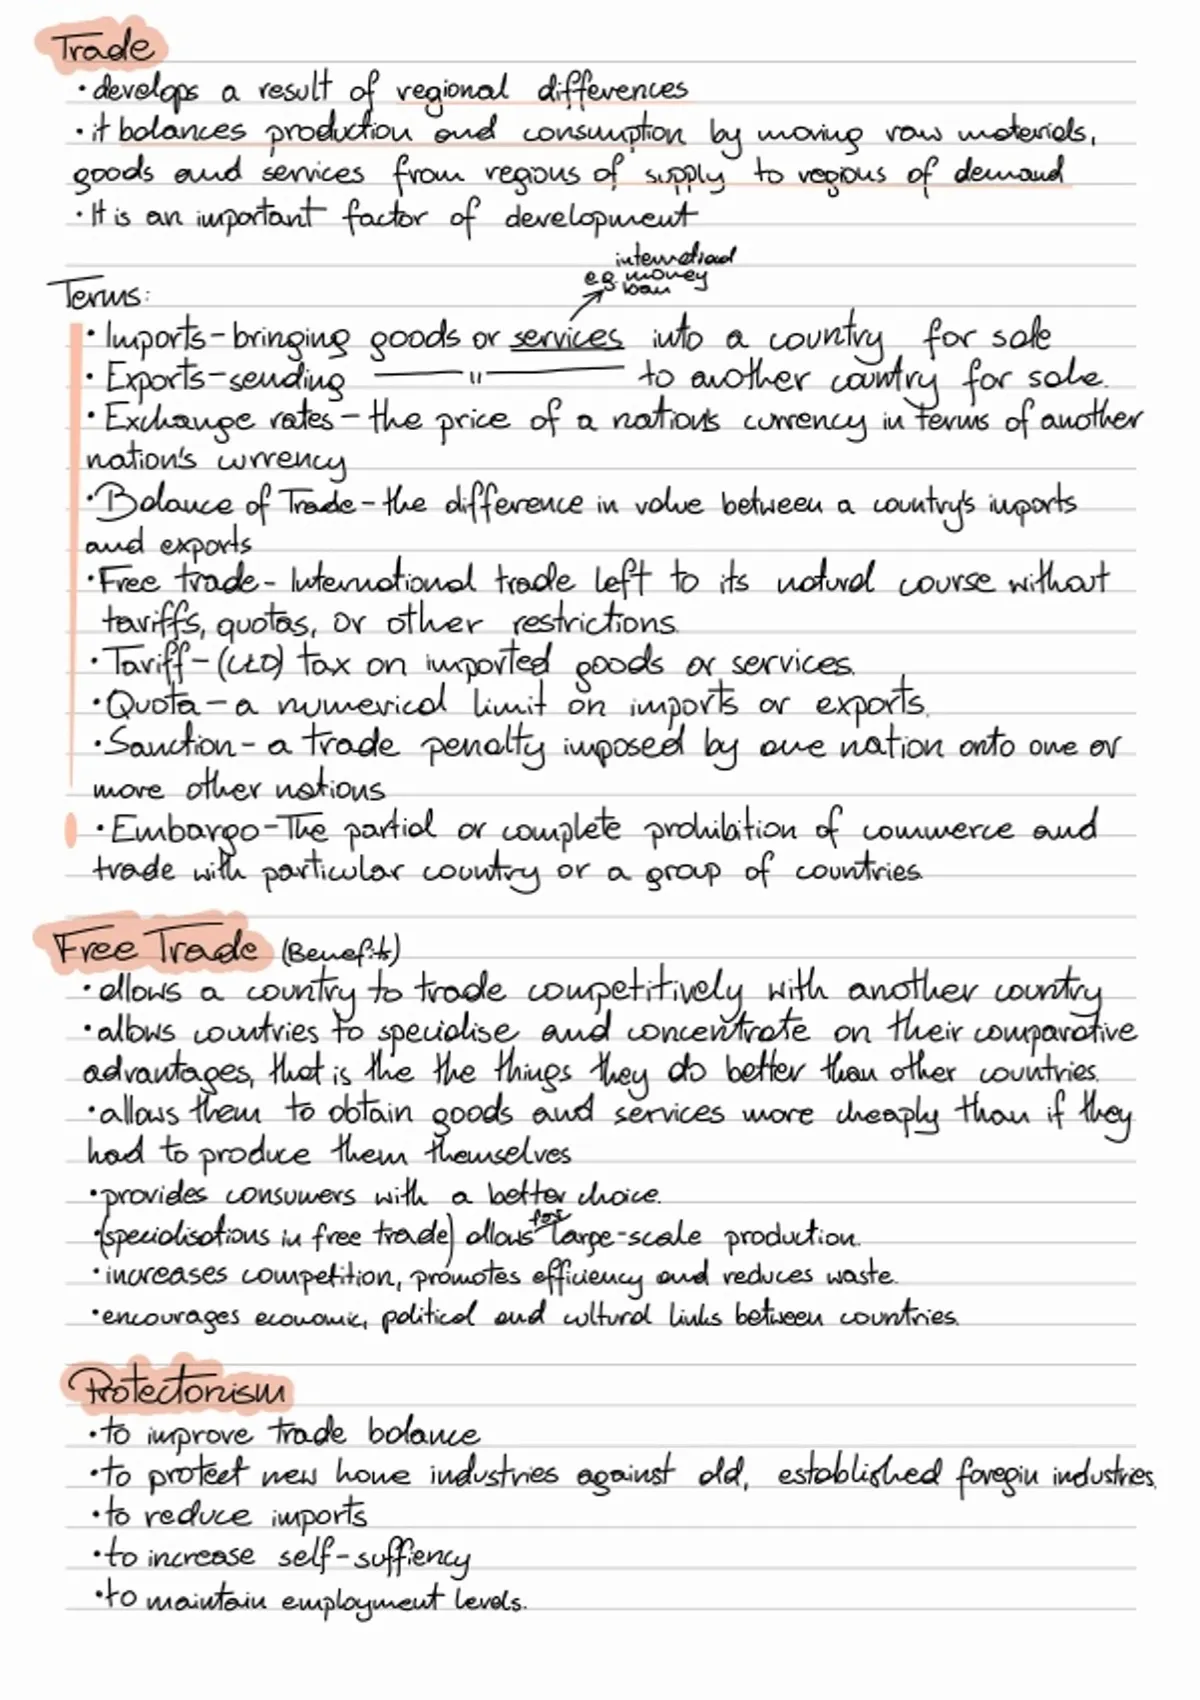 Trade
• develops a result of regional differences
• it balances production and consumption by moving raw materials,
goods and services from regions of supply to regions of demand
• It is an important factor of development
international
e.g. money
loan
Terms:
• Imports - bringing goods or services into a country for sale
• Exports - sending —— " —— to another country for sale.
• Exchange rates - the price of a nation's currency in terms of another
nation's currency
• Balance of Trade - the difference in value between a country's imports
and exports
• Free trade - International trade left to its natural course without
tariffs, quotas, or other restrictions.
• Tariff - (CŁO) tax on imported goods or services.
• Quota - a numerical limit on imports or exports.
• Sanction - a trade penalty imposed by one nation onto one or
more other nations
• Embargo - The partial or complete prohibition of commerce and
trade with particular country or a group of countries.
Free Trade (Benefits)
• allows a country to trade competitively with another country
• allows countries to specialise and concentrate on their comparative
advantages, that is the the things they do better than other countries.
• allows them to obtain goods and services more cheaply than if they
had to produce them themselves
• provides consumers with a better choice.
• (specialisations in free trade) allows for large-scale production.
• increases competition, promotes efficiency and reduces waste.
• encourages economic, political and cultural links between countries.
Protectonism
• to improve trade balance
• to protect new home industries against old, established foregin industries.
• to reduce imports
• to increase self-suffiency
• to maintain employment levels.